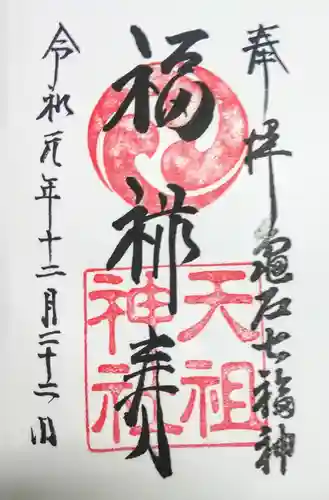 奉拝亀戸七福神
福禄寿
天祖神社
令和元年十二月二十二日